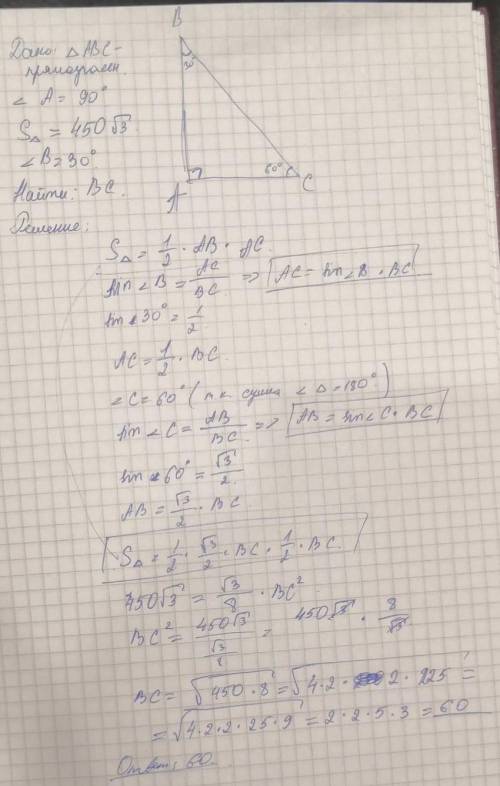 Дано: △ABC-
прямоуголн.
∠ A = 90°
S△ = 450√3
∠B=30°
Найти: BC.
Решение:
B
30°
60°
A
C
S△ = 1/2 · AB · AC.
sin∠B = AC/BC => AC = sin∠B · BC
sin∠30° = 1/2
AC = 1/2 · BC.
∠C = 60° (т.к. сумма ∠ △ = 180°)
sin∠C = AB/BC => AB = sin∠C · BC
sin∠60° = √3/2
AB = √3/2 · BC
S△ = 1/2 · √3/2 · BC · 1/2 · BC.
450√3 = √3/8 · BC²
BC² = 450√3/(√3/8) = 450√3 · 8/√3
BC = √450·8 = √4·2·2·225 =
= √4·2·2·25·9 = 2·2·5·3 = 60
Ответ: 60.